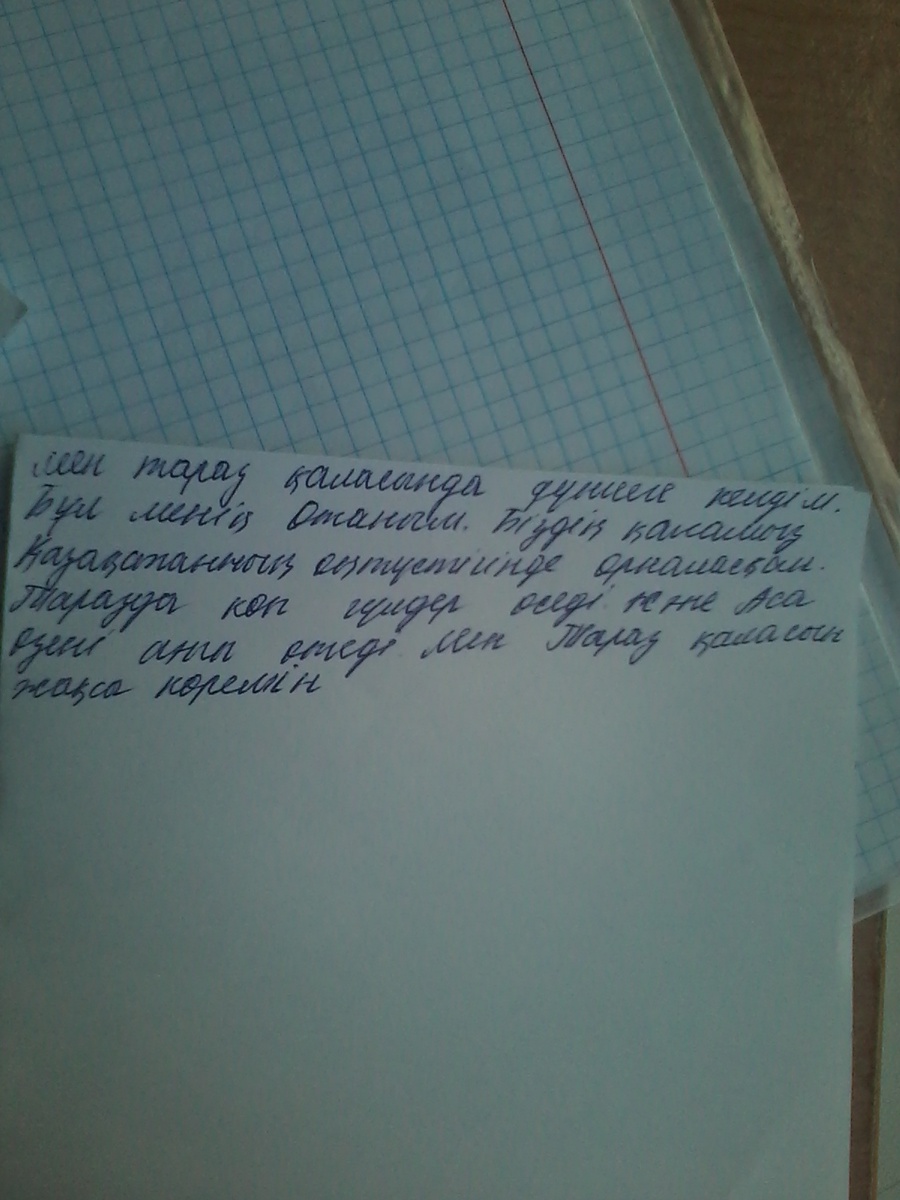 Мен тараз қаласында дүниеге келдім.
Бұл менің Отаным. Біздің қаламыз
Қазақстанның оңтүстігінде орналасқан.
Таразда көп гүлдер өседі. және Аса
өзені ағып өтеді. Мен Тараз қаласын
жақса көремін